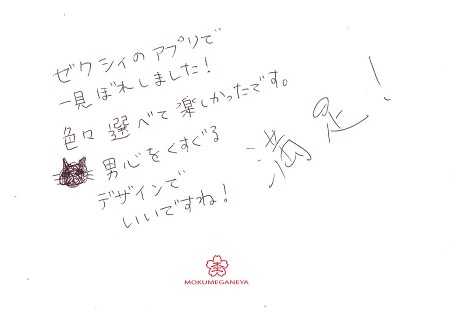 ゼクシィのアプリで
一見ぼれしました!
色々選べて楽しかったです。
男心をくすぐる
デザインで
いいですね!
満足!
MOKUMEGANEYA